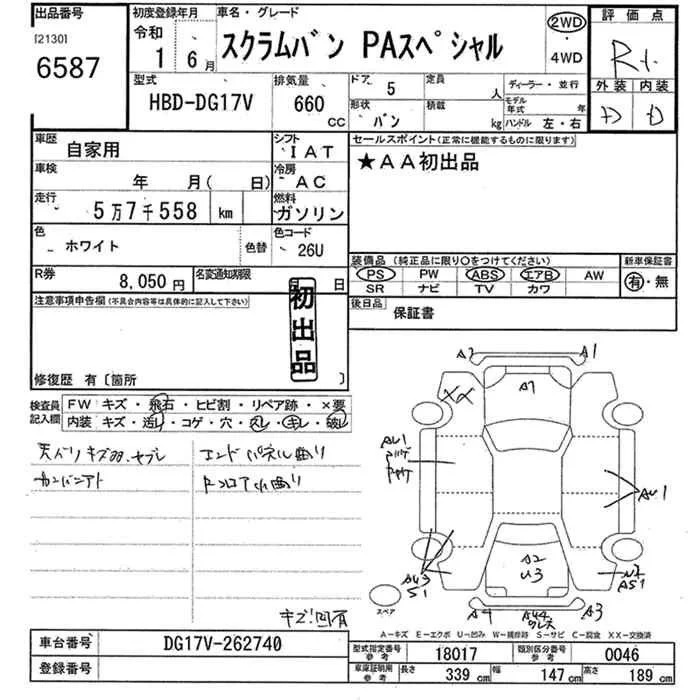 出品番号
[2130]
6587
初度登録年月
令和
1 6月
車名・グレード
スクラムバン PAスペシャル
2WD
・
4WD
評価点
R
外装 内装
D D
型式
HBD-DG17V
排気量
660
CC
ドア 5
定員 人
形状 バン
積載 kg
ディーラー・並行
モデル年式 年
ハンドル 左・右
車歴 自家用
シフト IAT
車検 年 月( 日)
冷房 AC
走行 5万7千558 km
燃料 ガソリン
色 ホワイト 色替
色コード 26U
R券 8,050円
名変通知期限 日
セールスポイント(正常に機能するものに限ります)
★AA初出品
装備品 (純正品に限り○をつけてください)
PS PW ABS エアB AW
SR ナビ TV カワ
新車保証書
有・無
後日品
保証書
注意事項申告欄(不具合内容等は具体的に記入して下さい)
初出品
修復歴 有〔箇所 〕
検査員記入欄
FW キズ・飛石・ヒビ割・リペア跡・×要
内装 キズ・汚レ・コゲ・穴・スレ・キレ・破レ
エンドパネル曲り
キズ凹有
A1
A7
XX
AU1
AU1
A2
U3
A4
A3
スペア
A-キズ E-エクボ U-凹み W-補修跡 S-サビ C-腐食 XX-交換済
車台番号 DG17V-262740
登録番号
型式指定番号 参考 18017
類別区分番号 参考 0046
車庫証明用 参考 長さ 339 cm 幅 147 cm 高さ 189 cm